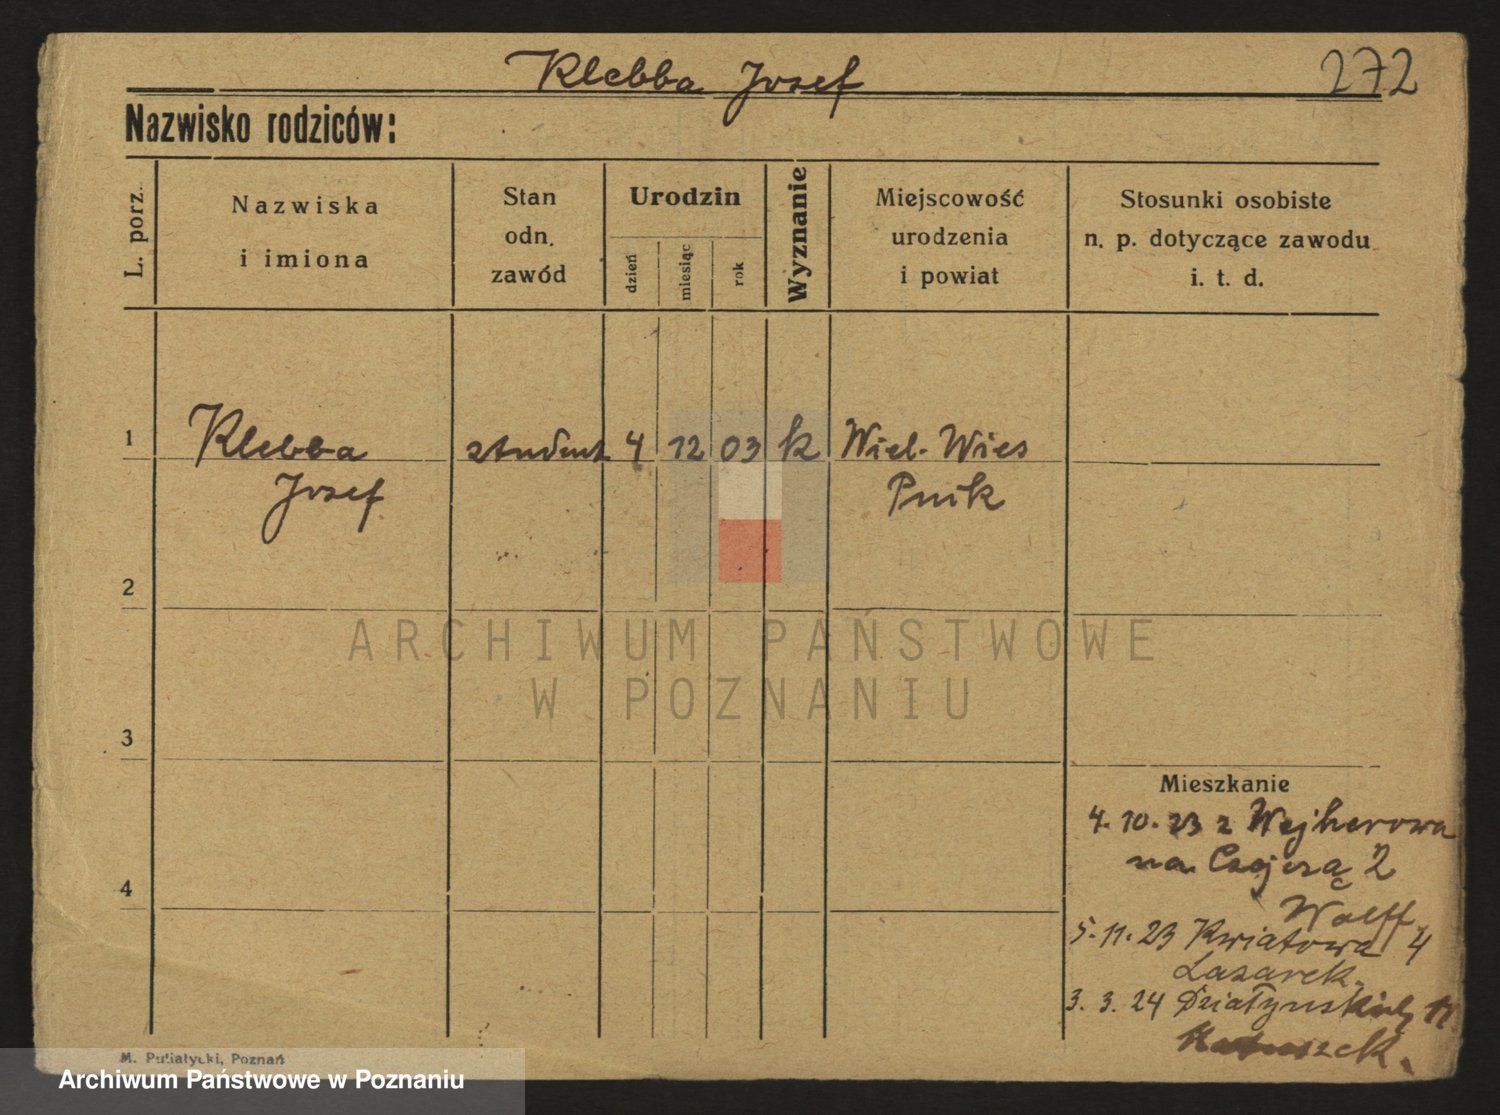 Klebba Josef
272
Nazwisko rodziców:
L. porz.
Nazwiska
i imiona
Stan
odn.
zawód
Urodzin
dzień
miesiąc
rok
Wyznanie
Miejscowość
urodzenia
i powiat
Stosunki osobiste
n. p. dotyczące zawodu
i. t. d.
1 Klebba student 4 12 03 k Wiel. Wies
Josef Puck
2
ARCHIWUM PAŃSTWOWE
W POZNANIU
3
Mieszkanie
4. 10. 23 z Wejherowa
na 2
4
Wolff
5. 11. 23 Kwiatowa 4
Lasarek.
3. 3. 24 Działyńskich 11
M. Putiatycki, Poznań
Archiwum Państwowe w Poznaniu